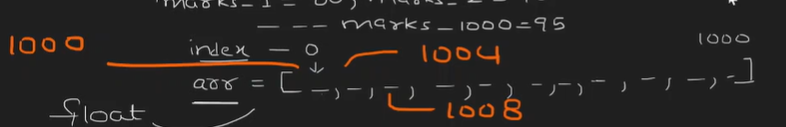 marks_1= 60, marks_2=
--- marks_1000=95
1000 index - 0 1004 1000
arr = [ _,-,-, -,-, -,-,-, -, -,-]
float 1008